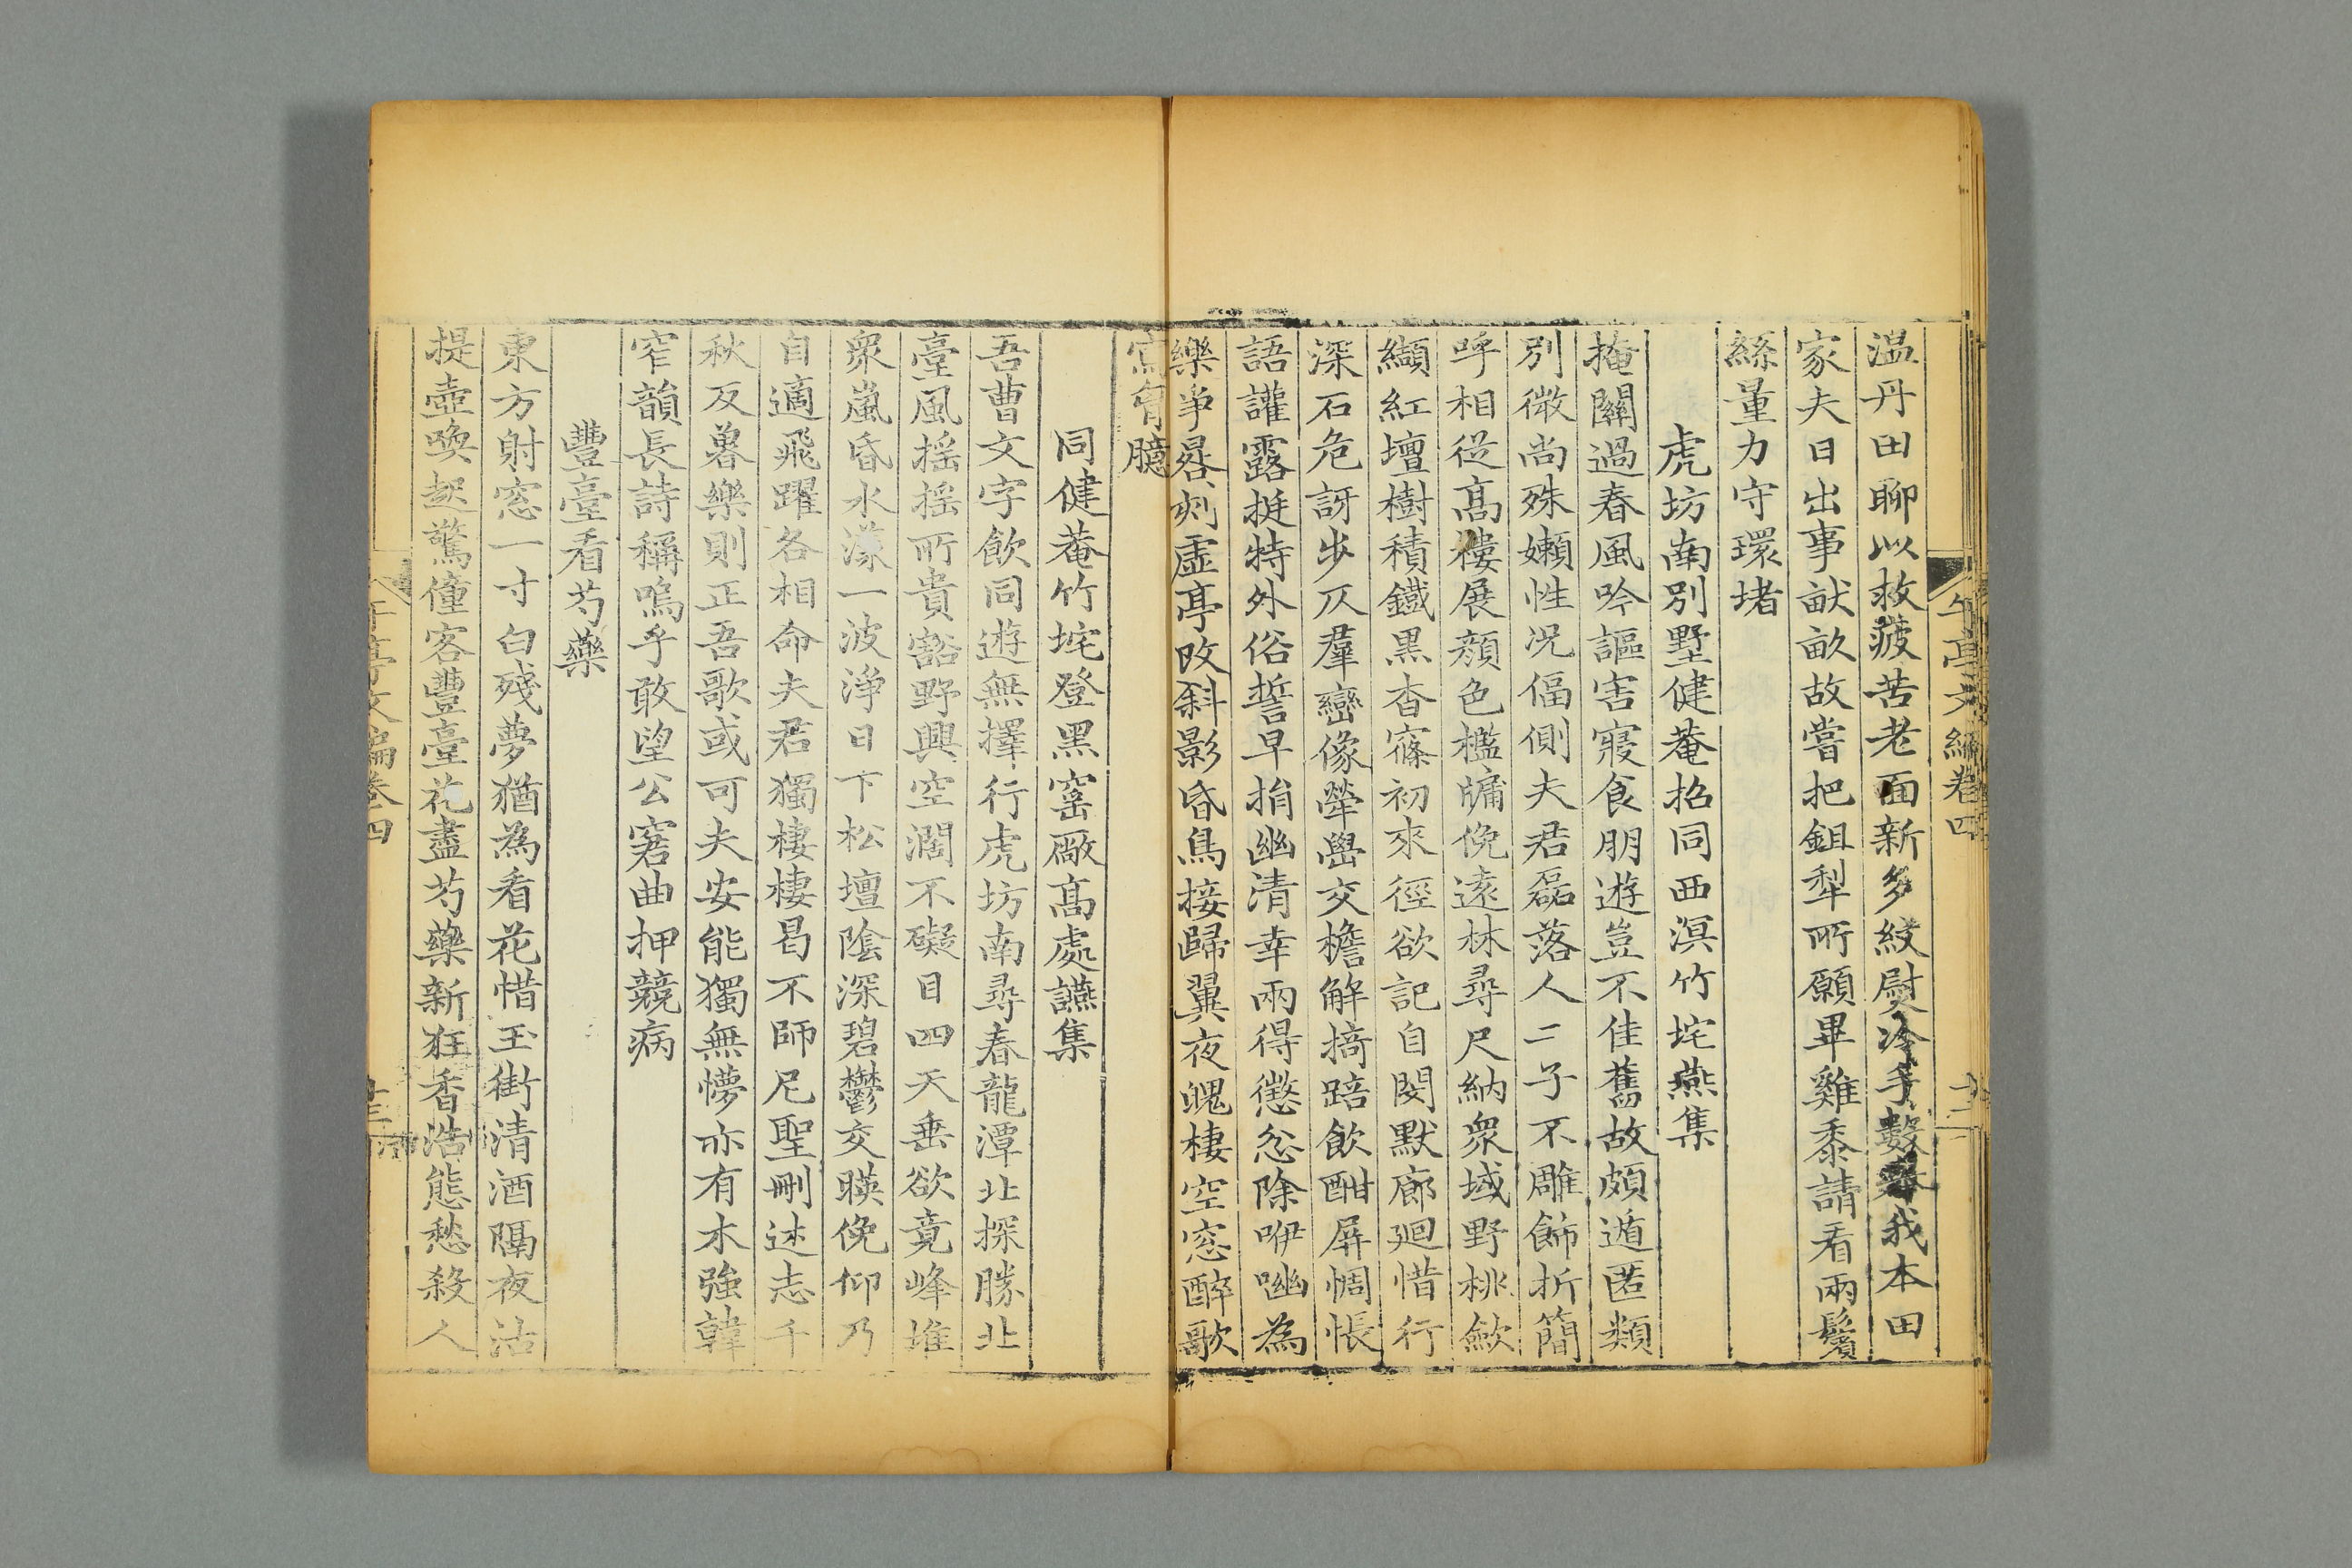 午亭文編卷四
十二
溫丹田聊以救疲苦老面新多紋熨冷手數奉我本田
家夫日出事畎畝故嘗把鉏犁所願畢雞黍請看兩鬢
絲量力守環堵
虎坊南別墅健菴招同西溟竹垞燕集
掩關過春風吟謳害寢食朋遊豈不佳舊故頗遁匿類
別微尚殊嬾性況偪側夫君磊落人二子不雕飾折簡
呼相從高樓展顏色檻牗俛遠林尋尺納衆域野桃歛
纈紅壇樹積鐵黑杳篠初來徑欲記自閔默廊廻惜行
深石危訝步仄羣巒像犖嶨交檐解摛踣飲酣屏惆悵
語讙露挺特外俗誓早捐幽清幸兩得懲忿除咿嚘為
樂爭晷刻虛亭改斜影昏鳥接歸翼夜魄棲空窓醉歌
寫胷臆
同健菴竹垞登黑窰厰高處讌集
吾曹文字飲同遊無擇行虎坊南尋春龍潭北探勝北
臺風摇摇所貴豁野興空濶不礙目四天垂欲竟峰堆
衆嵐昏水漾一波淨日下松壇陰深碧鬱交暎俛仰乃
自適飛躍各相命夫君獨棲棲曷不師尼聖刪述志千
秋反袂樂則正吾歌或可夫安能獨無懜亦有木強韓
窄韻長詩稱嗚乎敢望公窘曲押競病
豐臺看芍藥
東方射窓一寸白殘夢猶為看花惜玉街清酒隔夜沽
提壺喚起驚僮客豐臺花盡芍藥新狂香浩態愁殺人
午亭文編卷四
十三